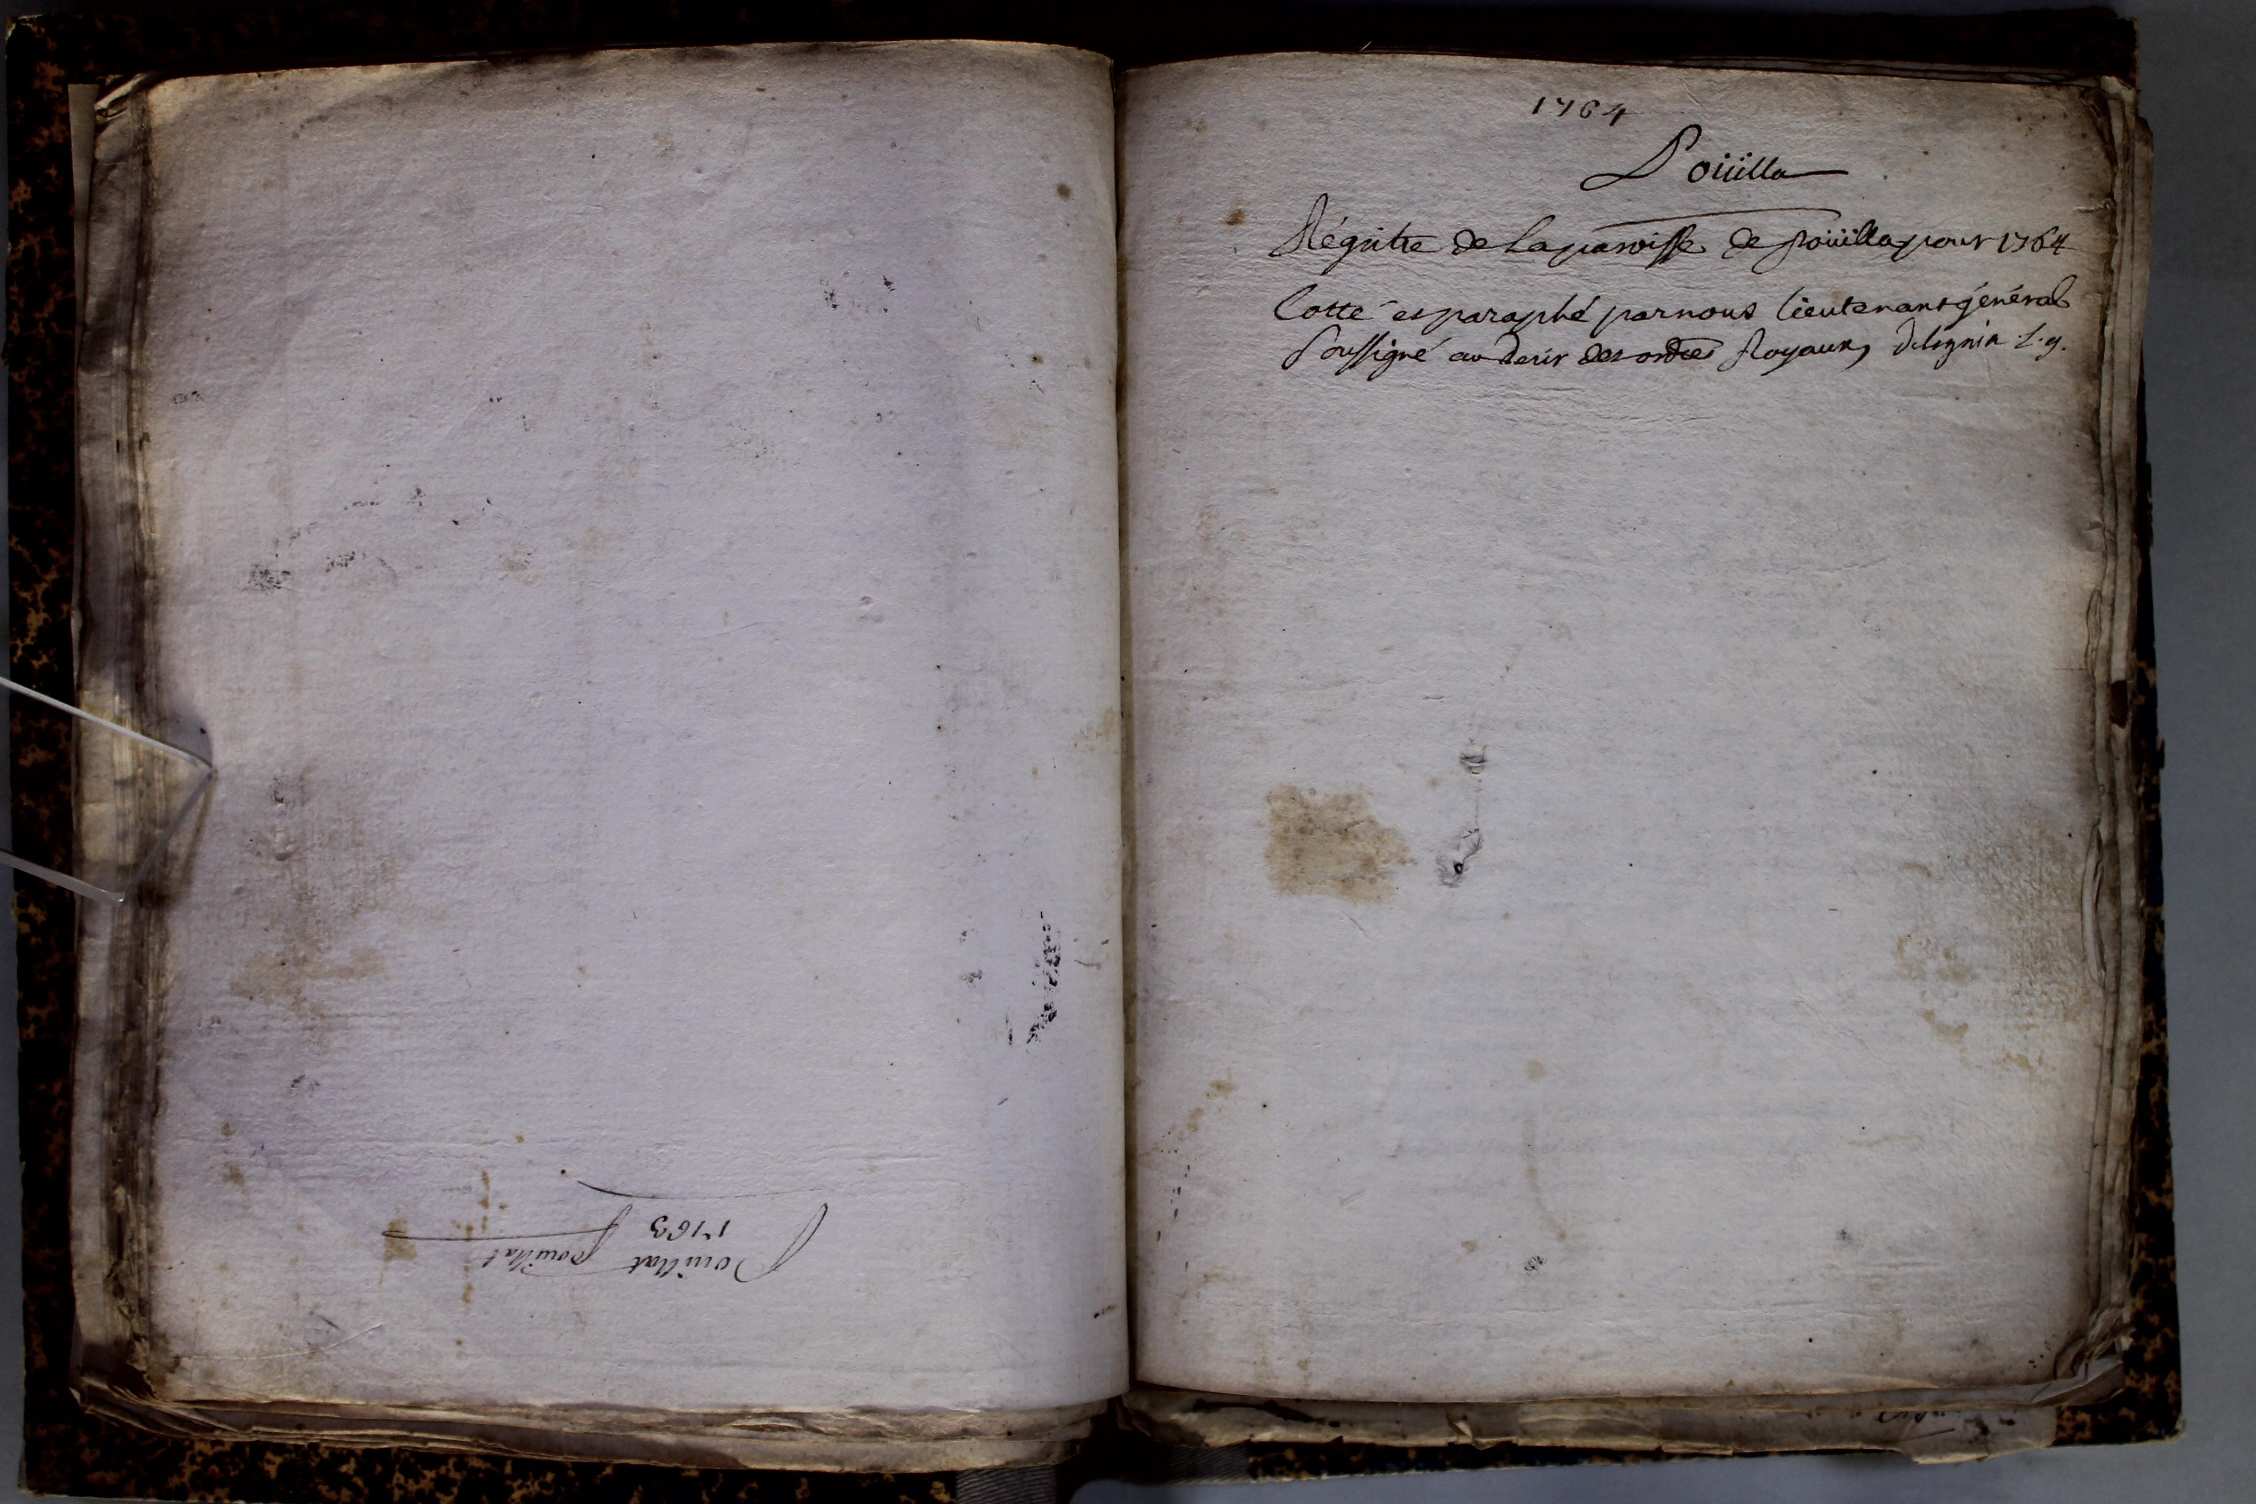 pouillat pouillat
1763
1764
Poüilla
Régistre de la paroisse de poüilla pour 1764
Cotté et paraphé par nous lieutenant général
soussigné au desir des ordres Royaux, L. g.